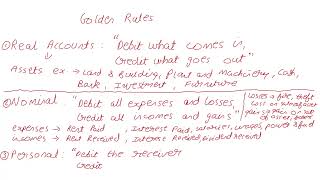 Golden Rules
① Real Accounts : "Debit what comes in,
Credit what goes out"
Assets ex → Land & Building, Plant and Machinery, Cash,
Bank, Investment, Furniture
② Nominal : "Debit all expenses and losses,
Credit all incomes and gains"
Losses → fire, theft
loss on sale of asset
gain on sale
of asset,
expenses → Rent Paid , Interest Paid, salaries, wages, power & fuel
incomes → Rent Received , Interest Received, dividend received
③ Personal : "Debit the receiver
Credit